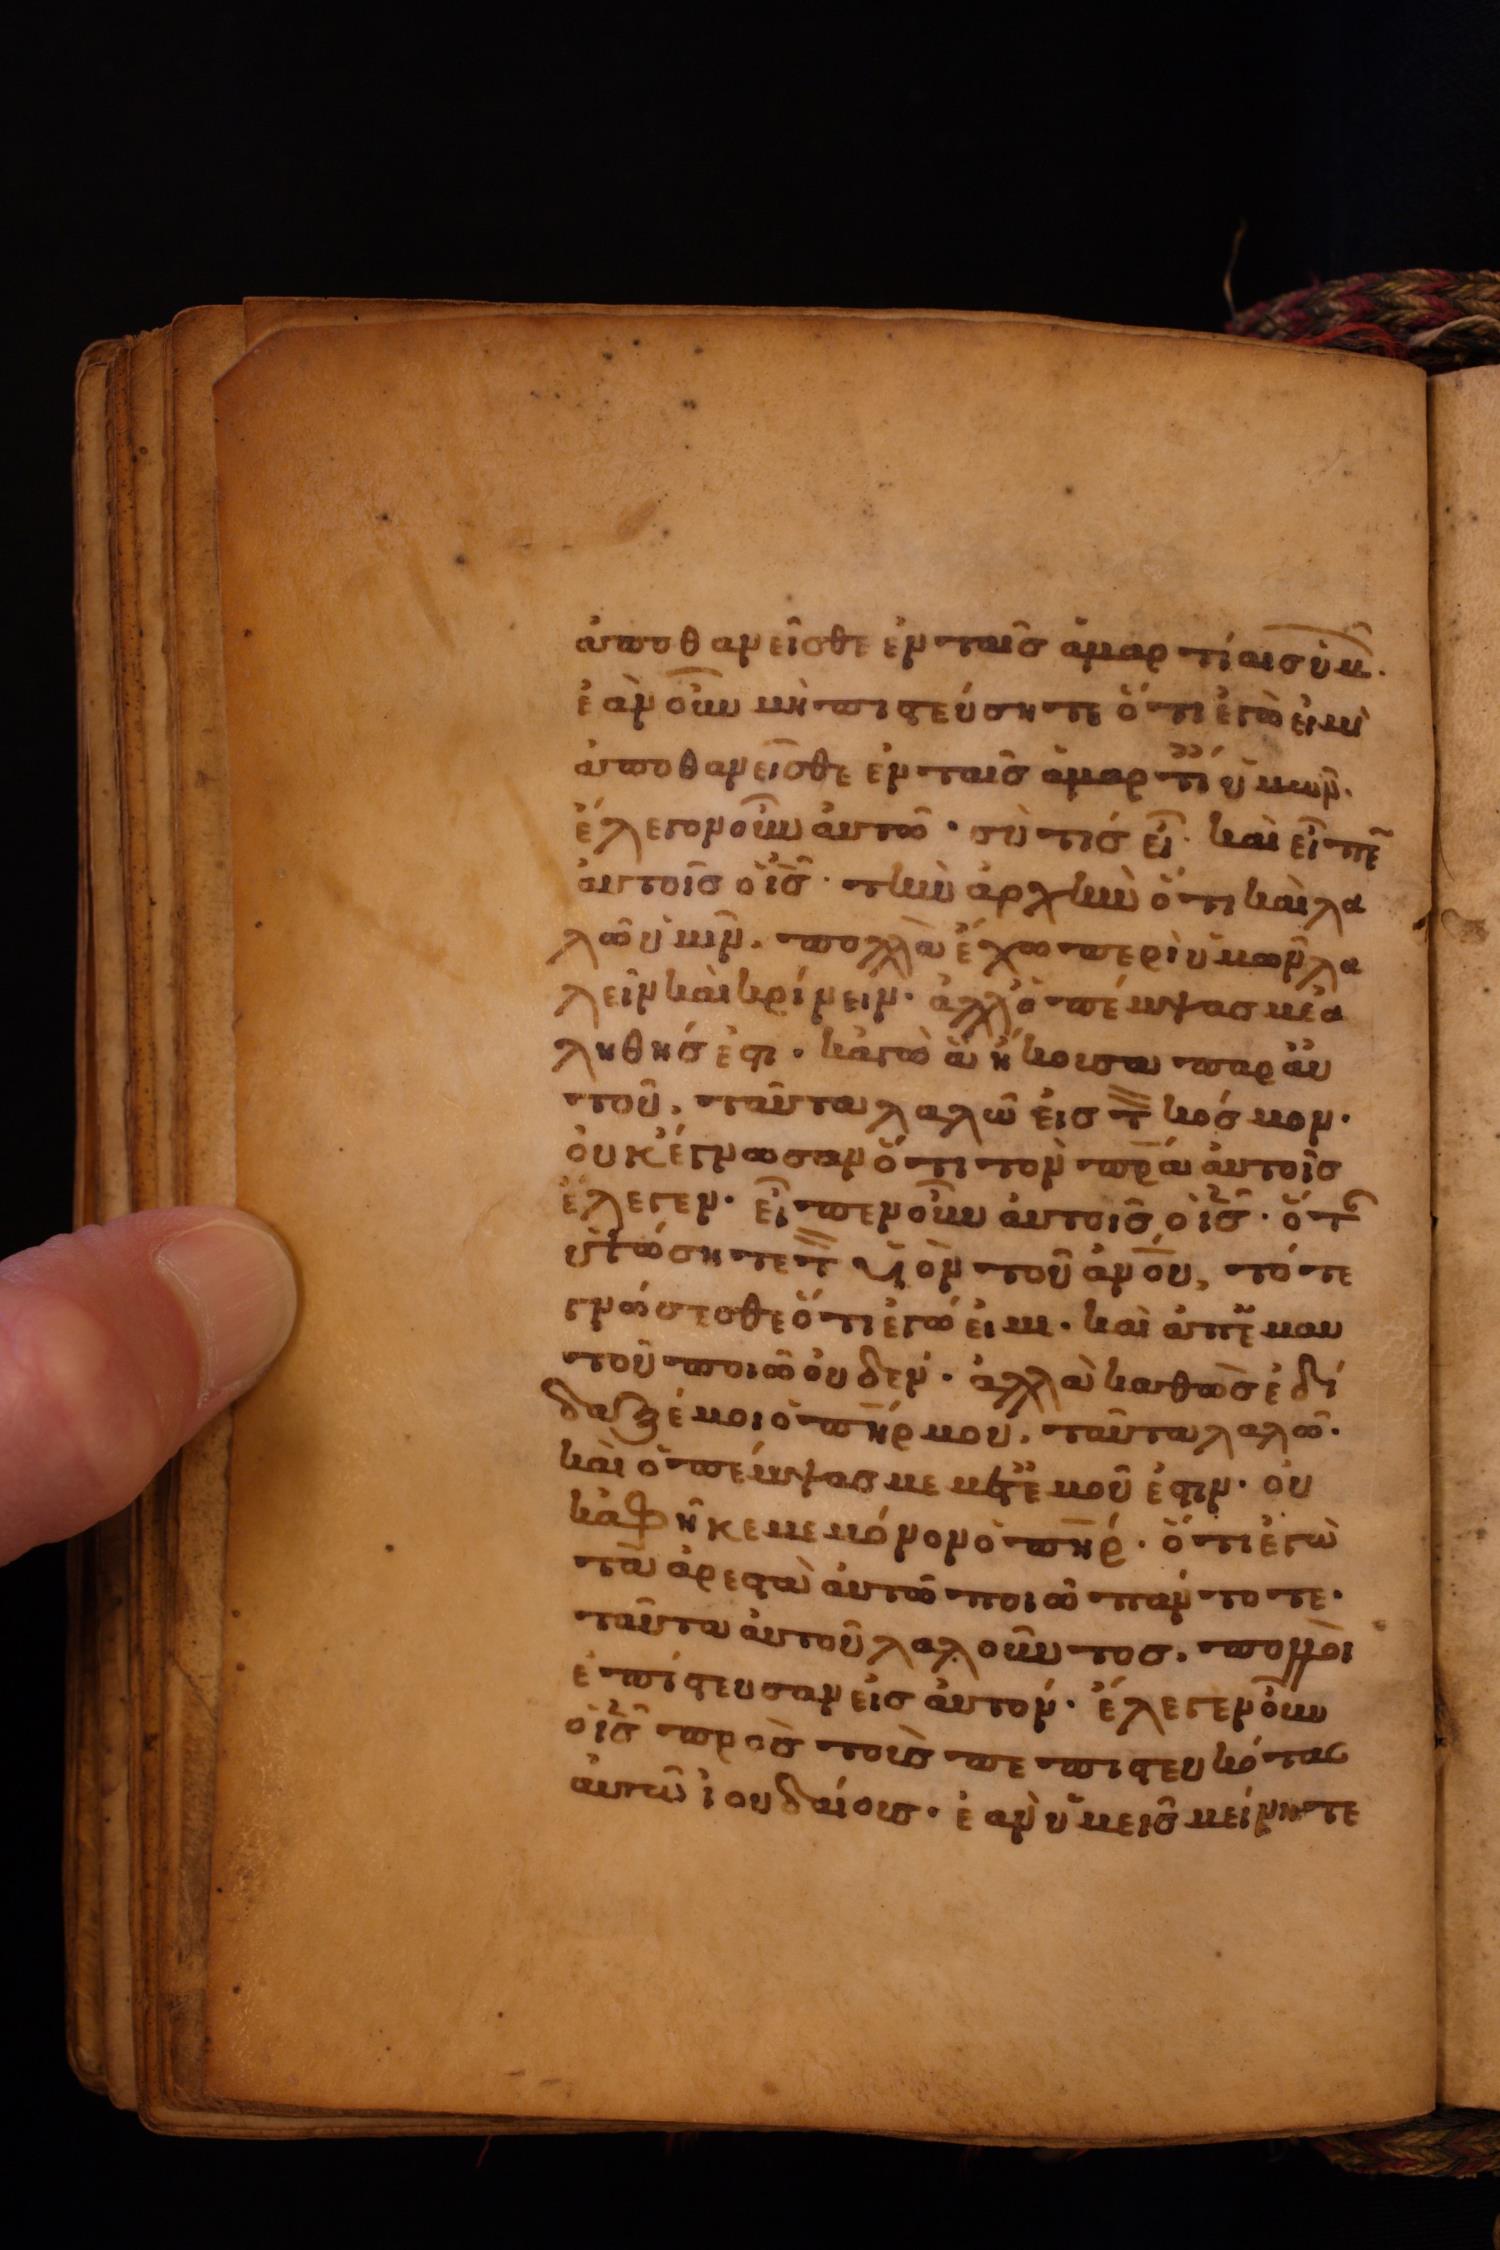 ἀποθανεῖσθε ἐν ταῖς ἁμαρτίαις ὑμ̑.
ἐὰν οὖν μὴ πιστεύσητε ὅτι ἐγὼ εἰμὶ
ἀποθανεῖσθε ἐν ταῖς ἁμαρτΐ ὑμῶν.
ἔλεγον οὖν αὐτῶ · σὺ τίς εἶ · καὶ εἶπε̃
αὐτοῖς ὁ ἰ̅ς̅ · τὴν ἀρχὴν ὅτι καὶ λα
λῶ ὑμῖν. πολλὰ ἔχω περὶ ὑμῶν λα
λεῖν καὶ κρίνειν · ἀλλ' ὁ πέμψας μὲ ἀ
ληθής ἐστι · κἀγὼ ἃ ἤκουσα παρ αὐ
τοῦ, ταῦτα λαλῶ εἰς τ̀ κόσμον ·
οὐκ ἔγνωσαν ὅτι τὸν π̅ρ̅α αὐτοῖς
ἔλεγεν · εἶπεν οὖν αὐτοῖς ὁ ἰ̅ς̅ · ὅτ
ὑψώσητε τ̀ υἱὸν τοῦ ἀ̅ν̅ο̅υ̅, τότε
γνώσεσθε ὅτι ἐγώ εἰμι · καὶ ἀπ' ἐμαυ
τοῦ ποιῶ οὐδέν · ἀλλὰ καθὼς ἐδί
δαξέ μοι ὁ π̅η̅ρ̅ μου, ταῦτα λαλῶ ·
καὶ ὁ πέμψας με μετ' ἐμοῦ ἐστιν · οὐ
κ ἀφῆκε με μόνον ὁ π̅η̅ρ̅ · ὅτι ἐγὼ
τὰ ἀρεστὰ αὐτῶ ποιῶ πάντοτε ·
ταῦτα αὐτοῦ λαλοῦντος. πολλοὶ
ἐπίστευσαν εἰς αὐτόν · ἔλεγεν οὖν
ὁ ἰ̅ς̅ πρὸς τοὺς πεπιστευκότας
αὐτῶ ἰουδαίους · ἐὰν ὑμεῖς μείνητε